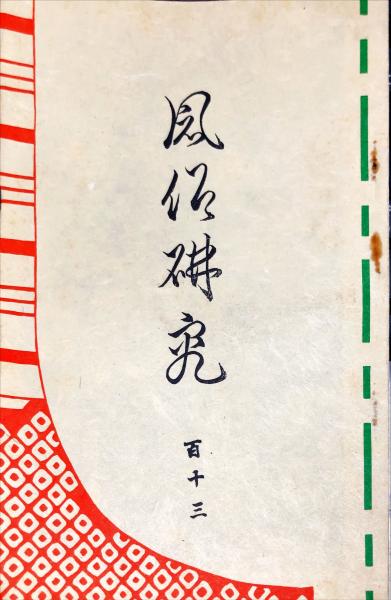 風俗研究
百十三